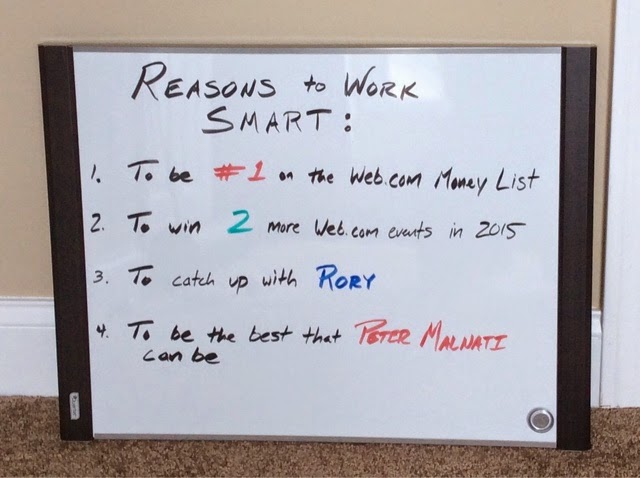 REASONS to WORK
SMART:
1. To be #1 on the Web.com Money List
2. To win 2 more Web.com events in 2015
3. To catch up with RORY
4. To be the best that PETER MALNATI
can be